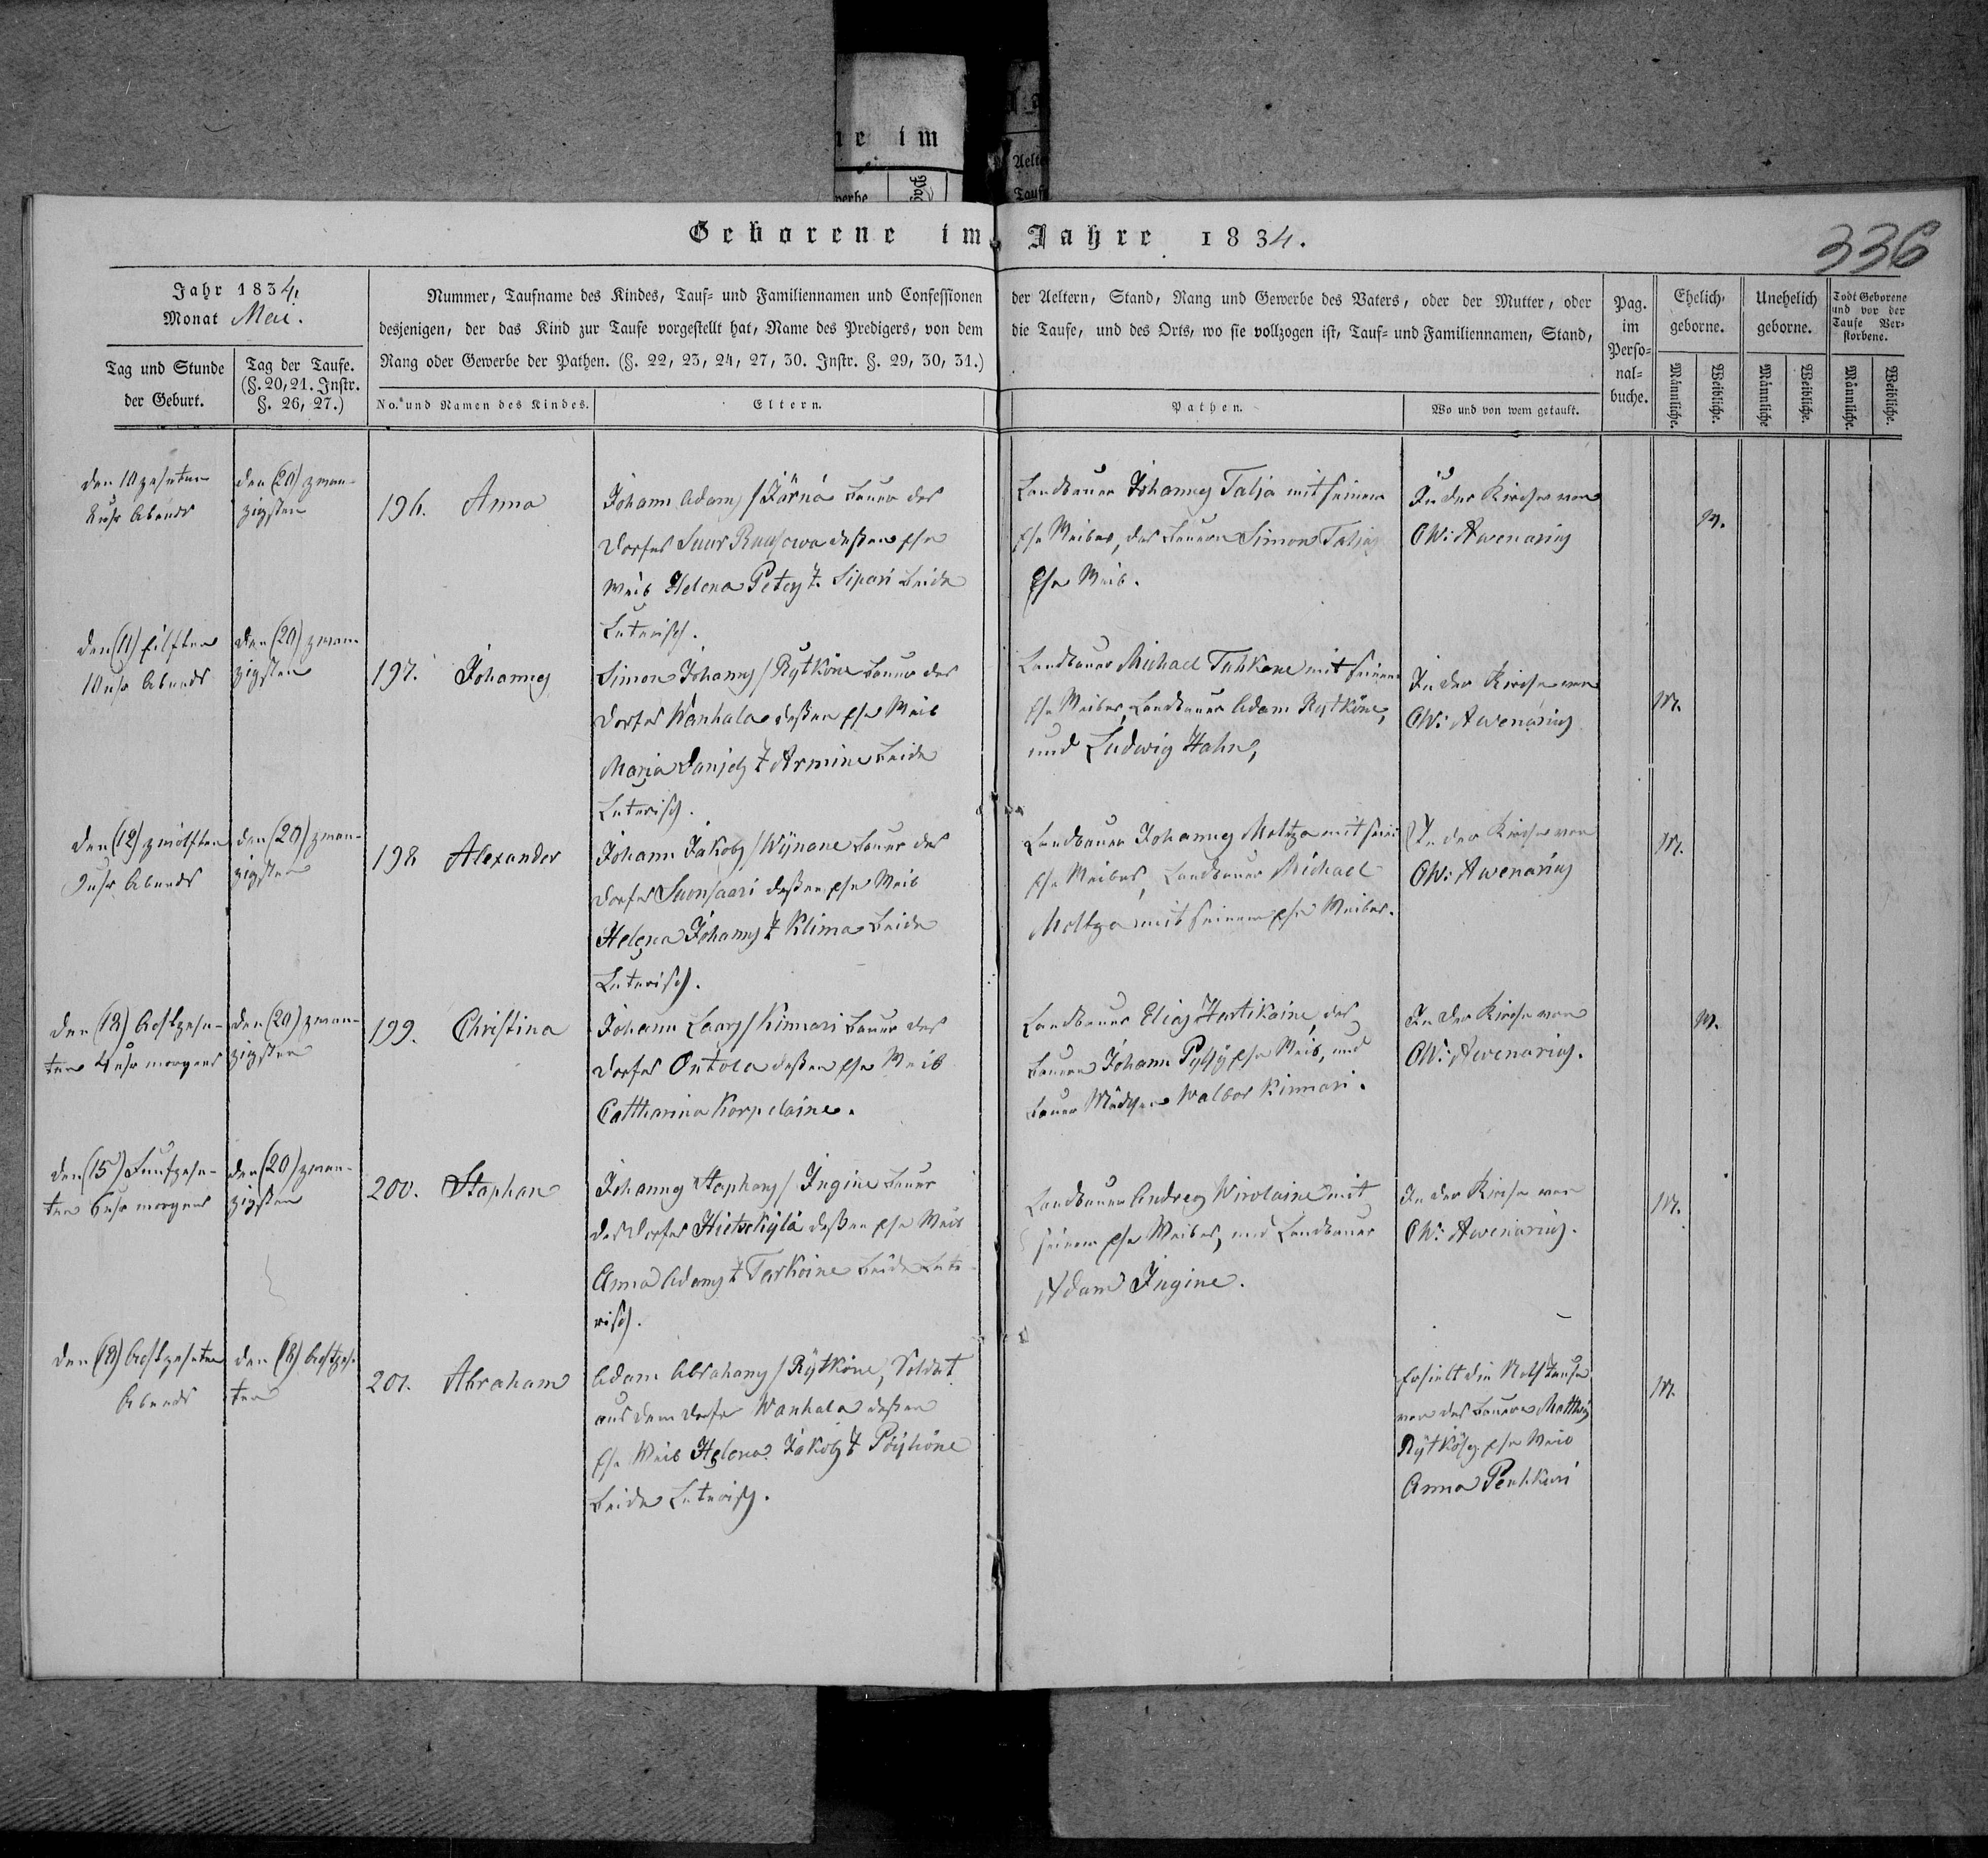 ne im
Aelte
werbe
Pag
Tauf
Geborene im Jahre 1834.
336
Jahr 1834.
Monat Mai.
Tag und Stunde
der Geburt.
Tag der Taufe.
(§. 20, 21. Instr.
§. 26, 27.)
Nummer, Taufname des Kindes, Tauf- und Familiennamen und Confessionen der Aeltern, Stand, Rang und Gewerbe des Vaters, oder der Mutter, oder
desjenigen, der das Kind zur Taufe vorgestellt hat, Name des Predigers, von dem die Taufe, und des Orts, wo sie vollzogen ist, Tauf- und Familiennamen, Stand,
Rang oder Gewerbe der Pathen. (§. 22, 23, 24, 27, 30. Instr. §. 29, 30, 31.)
No. und Namen des Kindes.
Eltern.
Pathen.
Wo und von wem getauft.
Pag.
im
Perso-
nal-
buche.
Ehelich-
geborne.
Unehelich
geborne.
Todt Geborene
und vor der
Taufe Ver-
storbene.
Männliche.
Weibliche.
Männliche
Weibliche.
Männliche.
Weibliche.
den 10 zehnten
8 uhr Abends
den (20) zwan-
zigsten
196. Anna
Johann Adams / Järnä Bauer des
Dorfes Suur Rausowa deßen ehe
Weib Helena Peters t. Sipari beide
Luterisch.
Landbauer Johannes Talja mit seinem
ehe Weibes, des Bauern Simon Talja
ehe Weib.
In der Kirche von
OW: Awenarius
W.
den (11) eilften
10 uhr Abends
den (20) zwan-
zigsten
197. Johannes
Simon Johanns / Rytköne Bauer des
Dorfes Wanhala deßen ehe Weib
Maria Daniels t Armine beide
Luterisch.
Landbauer Michael Tuhkane mit seinem
ehe Weibes, Landbauer Adam Rytköne,
und Ludwig Hahn,
In der Kirche von
OW: Awenarius
M.
den (12) zwölften
9 uhr Abends
den (20) zwan-
zigsten
198 Alexander
Johann Jakobs / Wÿnane Bauer des
Dorfes Suensaari deßen ehe Weib
Helena Johanns t Klima beide
Luterisch.
Landbauer Johannes Moltza mit sein
ehe Weibes, Landbauer Michael
Moltza mit seinem ehe Weibes.
In der Kirche von
OW: Awenarius
M.
den (18) Achtzehn-
ten 4 uhr morgens
den (20) zwan-
zigsten
199. Christina
Johann Laars / Kinnari Bauer des
Dorfes Ontola deßen ehe Weib
Cattharina Korpelaine.
Landbauer Elias Hartikaine, des
Bauern Johann ehe Weib, und
Bauer Mädchen Walbor Kinnari.
In der Kirche von
OW: Awenarius.
W.
den (15) Funfzehn-
ten 6 uhr morgens
den (20) zwan-
zigsten
200. Staphan
Johannes Staphans / Ingine Bauer
des Dorfes Hietäkylä deßen ehe Weib
Anna Adams t Tarkoine beide Lute-
risch.
Landbauer Andreas Wirolaine mit
seinem ehe Weibes, und Landbauer
Adam Ingine.
In der Kirche von
OW: Awenarius.
M.
den (18) Achtzehnten
Abends
den (18) Achtzeh-
ten
201. Abraham
Adam Abrahams / Rytköne, Soldat
aus dem Dorfe Wanhala deßen
ehe Weib Helena Jakobs t Pöyhöne
beide Luterisch.
Erhielt die Nothtaufe
von des Bauern Matthias
ehe Weib
Anna
M.